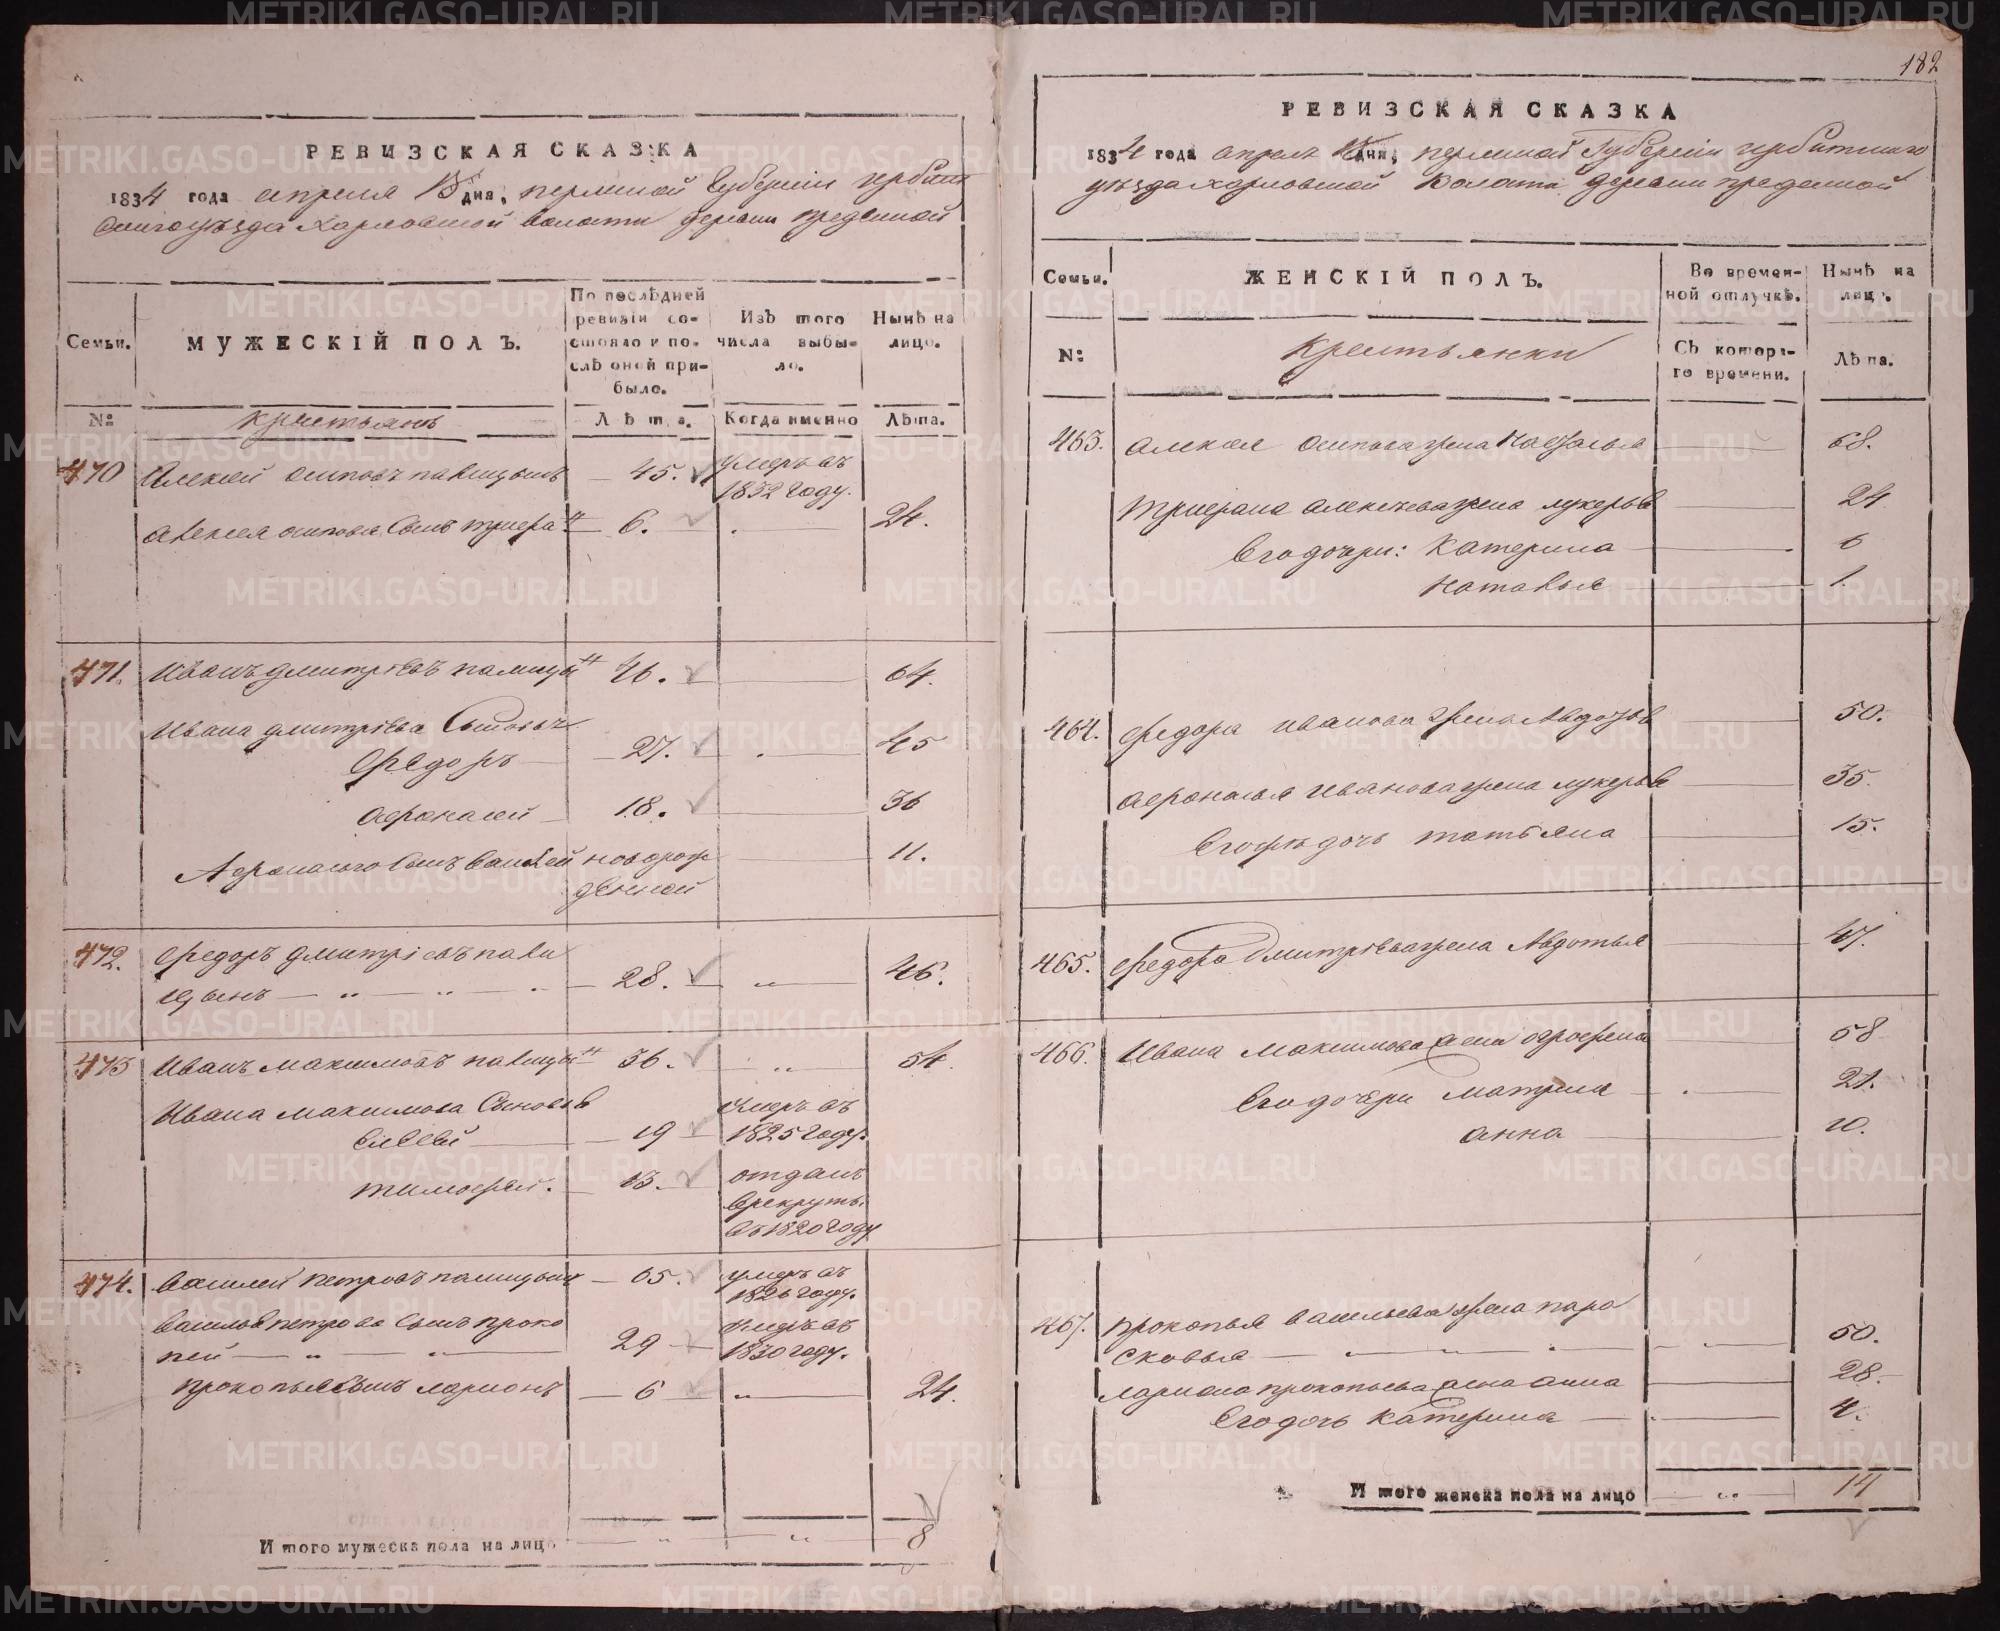 182
РЕВИЗСКАЯ СКАЗКА
1834 года апреля 15 дня, пермской Губернии ирбит
скаго уѣзда Харловской волости деревни
Семьи.
МУЖЕСКІЙ ПОЛЪ.
По послѣдней ревизіи состояло и послѣ оной прибыло.
Изъ того числа выбыло.
Нынѣ на лицо.
№
крестьянъ
Лѣта.
Когда именно
Лѣта.
470 Алексей осиповъ павицынъ 45. умеръ въ
1832 году.
алексея осипова сынъ 6. 24.
471. Иванъ дмитріевъ павицы 46. 64.
Ивана дмитріева Сыновья
Федоръ 27. 45
афонасей 18. 36
Афонасьего сынъ василей новорож 11.
денной
472. Федоръ дмитріевъ пави
цынъ 28. 46.
473 Иванъ максимовъ павицы 36. 54.
Ивана максимова Сыновья умеръ въ
19 1825 году.
тимофей. 13. отданъ
в рекруты
въ 1820 году
474. василей петровъ павицынъ 65. умеръ въ
1826 году.
василья петрова сынъ проко умеръ въ
пей 29 1830 году.
прокопья сынъ ларионъ 6 24.
И того мужеска пола на лицо 8
РЕВИЗСКАЯ СКАЗКА
1834 года апреля 15 дня, пермской Губерніи ирбитскаго
уѣзда харловской волости деревни
Семьи.
ЖЕНСКІЙ ПОЛЪ.
Во временной отлучкѣ.
Нынѣ на лицо.
№
Крестьянки
Съ котораго времени.
Лѣта.
463. алексея осипова жена 68.
алексеева жена лукерья 24
Его дочери: Катерина 6
Наталья 1.
464. Федора иванова жена Авдотья 50.
афонасья Иванова жена лукерья 35.
Его дочь татьяна 15.
465. Федора Дмитріева жена Авдотья 47.
466. Ивана Максимова жена огрофена 58
Его дочери матрена 21.
анна 10.
467. прокопья васильева жена пара
сковья 50.
лариона прокопьева жена анна 28.
Его дочь катерина 4.
И того женска пола на лицо 14
METRIKI.GASO-URAL.RU